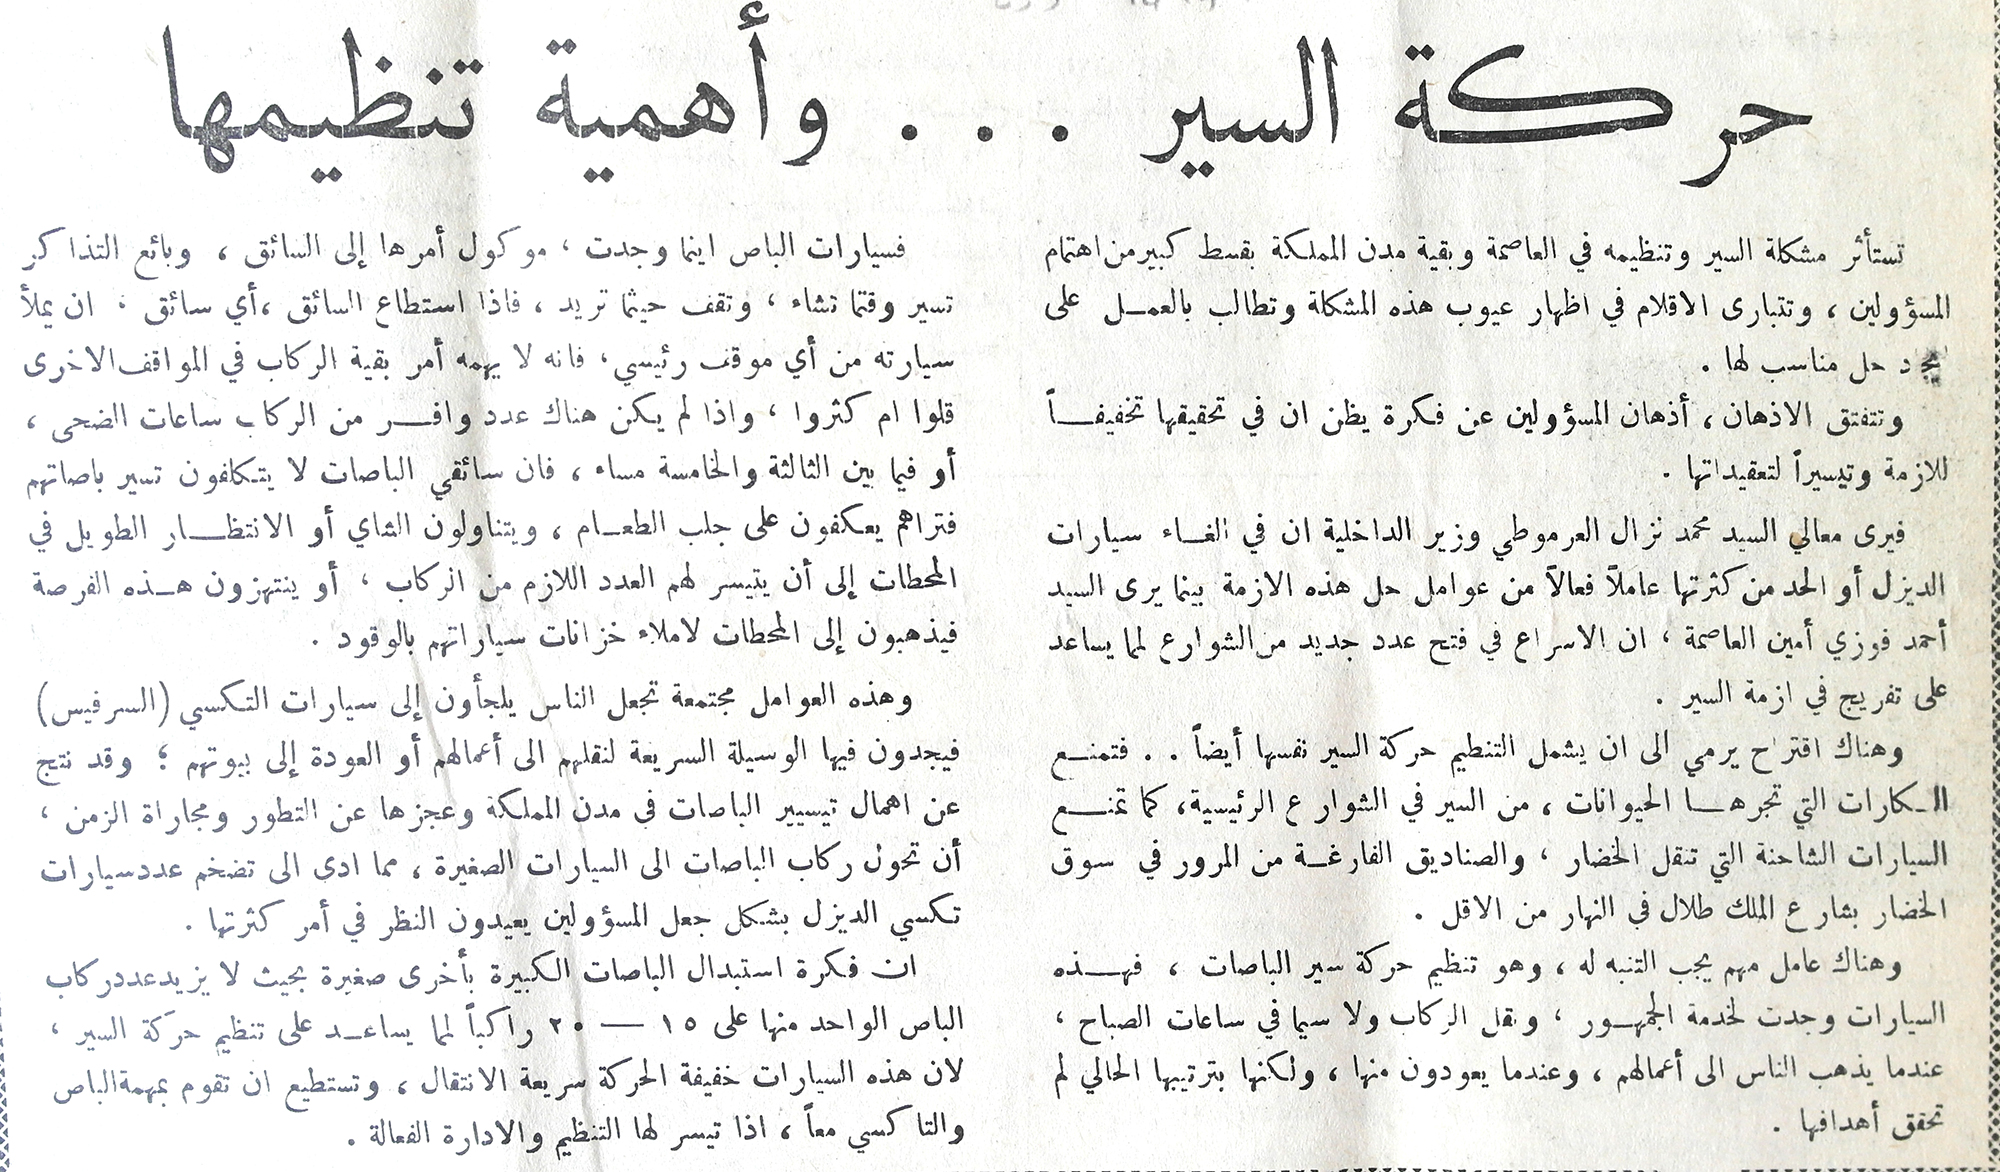 حركة السير . . . وأهمية تنظيمها
تستأثر مشكلة السير وتنظيمه في العاصمة وبقية مدن المملكة بقسط كبير من اهتمام
المسؤولين ، وتتبارى الاقلام في اظهار عيوب هذه المشكلة وتطالب بالعمل على
يجاد حل مناسب لها .
وتتفتق الاذهان ، أذهان المسؤولين عن فكرة يظن ان في تحقيقها تخفيفاً
للازمة وتيسيراً لتعقيداتها .
فيرى معالي السيد محمد نزال العرموطي وزير الداخلية ان في الغاء سيارات
الديزل أو الحد من كثرتها عاملاً فعالاً من عوامل حل هذه الازمة بينما يرى السيد
أحمد فوزي أمين العاصمة ، ان الاسراع في فتح عدد جديد من الشوارع لمما يساعد
على تفريج في ازمة السير .
وهناك اقتراح يرمي الى ان يشمل التنظيم حركة السير نفسها أيضاً . . فتمنع
الكارات التي تجرها الحيوانات ، من السير في الشوارع الرئيسية ، كما تمنع
السيارات الشاحنة التي تنقل الخضار ، والصناديق الفارغة من المرور في سوق
الخضار بشارع الملك طلال في النهار من الاقل .
وهناك عامل مهم يجب التنبه له ، وهو تنظيم حركة سير الباصات ، فهذه
السيارات وجدت لخدمة الجمهور ، ونقل الركاب ولا سيما في ساعات الصباح ،
عندما يذهب الناس الى أعمالهم ، وعندما يعودون منها ، ولكنها بترتيبها الحالي لم
تحقق أهدافها .
فسيارات الباص اينما وجدت ، موكول أمرها إلى السائق ، وبائع التذاكر
تسير وقتما تشاء ، وتقف حيثما تريد ، فاذا استطاع السائق ، أي سائق ، ان يملأ
سيارته من أي موقف رئيسي ، فانه لا يهمه أمر بقية الركاب في المواقف الاخرى
قلوا ام كثروا ، واذا لم يكن هناك عدد وافر من الركاب ساعات الضحى ،
أو فيما بين الثالثة والخامسة مساء ، فان سائقي الباصات لا يتكلفون تسير باصاتهم
فتراهم يعكفون على جلب الطعام ، ويتناولون الشاي أو الانتظار الطويل في
المحطات إلى أن يتيسر لهم العدد اللازم من الركاب ، أو ينتهزون هذه الفرصة
فيذهبون إلى المحطات لاملاء خزانات سياراتهم بالوقود .
وهذه العوامل مجتمعة تجعل الناس يلجأون إلى سيارات التكسي (السرفيس)
فيجدون فيها الوسيلة السريعة لنقلهم الى أعمالهم أو العودة إلى بيوتهم ؛ وقد نتج
عن اهمال تيسيير الباصات في مدن المملكة وعجزها عن التطور ومجاراة الزمن ،
أن تحول ركاب الباصات الى السيارات الصغيرة ، مما ادى الى تضخم عدد سيارات
تكسي الديزل بشكل جعل المسؤولين يعيدون النظر في أمر كثرتها .
ان فكرة استبدال الباصات الكبيرة بأخرى صغيرة بحيث لا يزيد عدد ركاب
الباص الواحد منها على ١٥ — ٢٠ راكباً لمما يساعد على تنظيم حركة السير ،
لان هذه السيارات خفيفة الحركة سريعة الانتقال ، وتستطيع ان تقوم بمهمة الباص
والتاكسي معاً ، اذا تيسر لها التنظيم والادارة الفعالة .